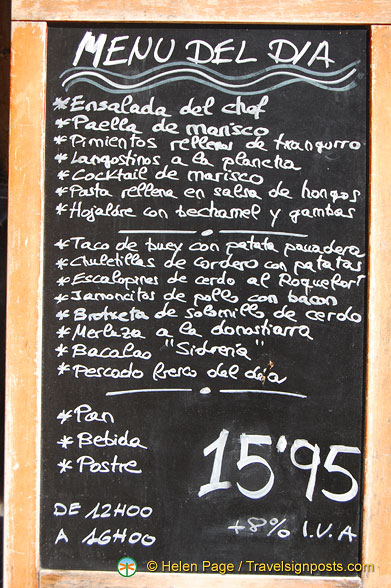 MENU DEL DIA
* Ensalada del chef
* Paella de marisco
* Pimientos rellenos de txangurro
* Langostinos a la plancha
* Cocktail de marisco
* Pasta rellena en salsa de hongos
* Hojaldre con bechamel y gambas
* Taco de buey con patata panadera
* Chuletillas de cordero con patatas
* Escalopines de cerdo al Roquefort
* Jamoncitos de pollo con bacon
* Brotxeta de solomillo de cerdo
* Merluza a la donostiarra
* Bacalao "Sidreria"
* Pescado fresco del dia
* Pan
* Bebida
* Postre
15'95
DE 12H00
A 16H00
+8% I.V.A
© Helen Page / Travelsignposts.com